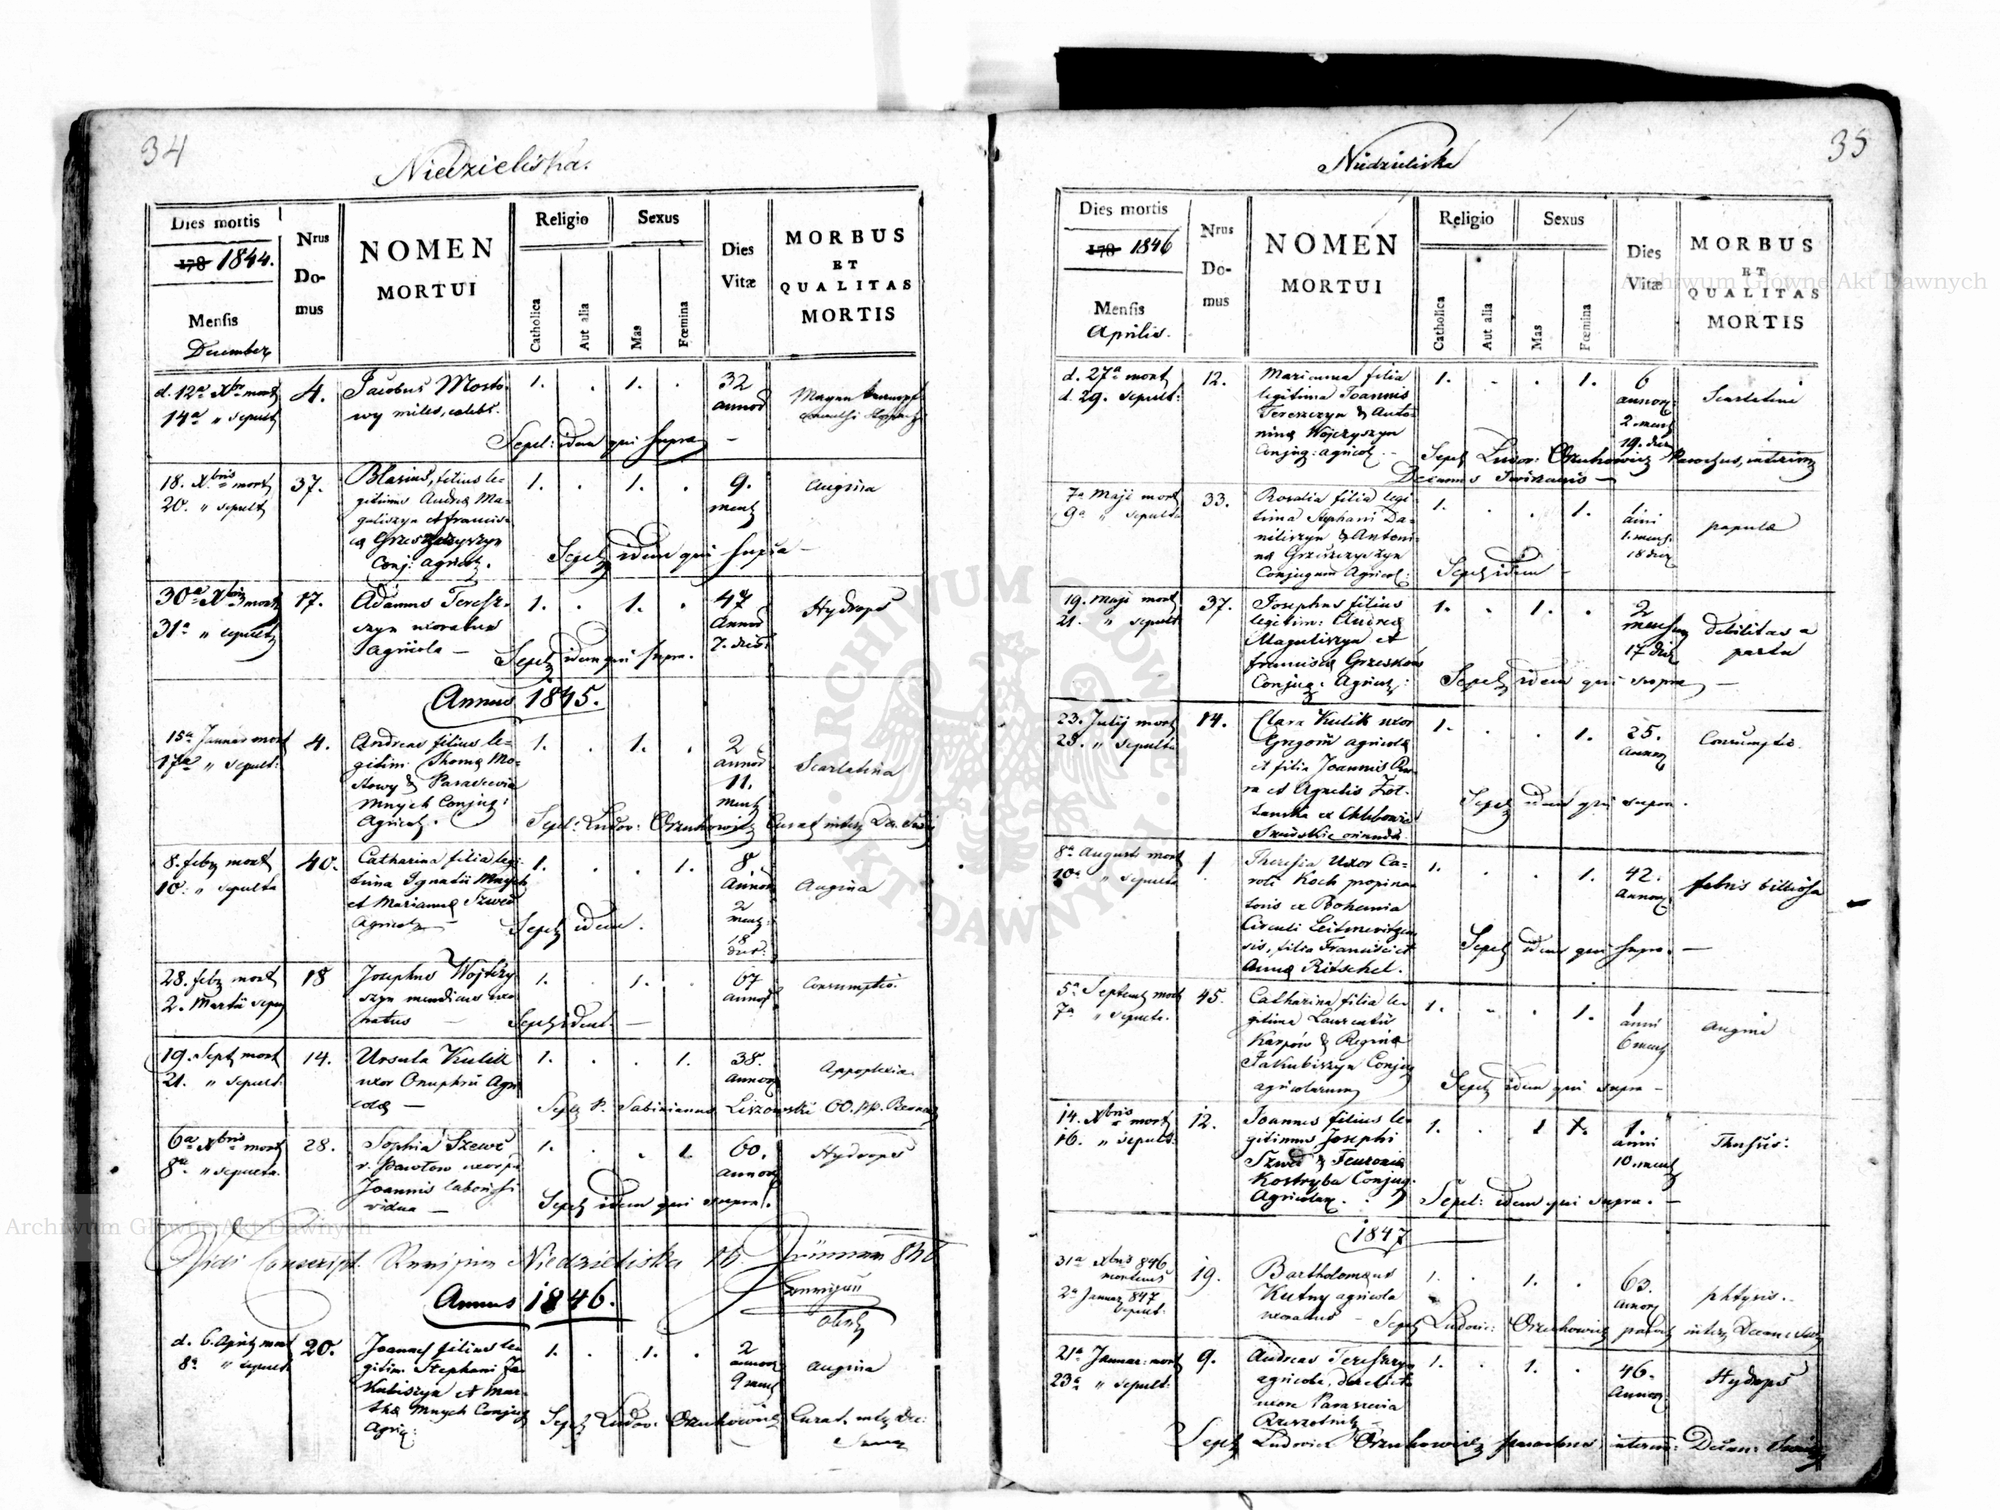 34
Niedzieliska.
Dies mortis
178 1844.
Mensis
December
Nrus
Do-
mus
NOMEN
MORTUI
Religio
Catholica
Aut alia
Sexus
Mas
Fœmina
Dies
Vitæ
MORBUS
ET
QUALITAS
MORTIS
d. 12a Xbr mort
14a " sepult
4.
Jacobus Mosto-
wy miles, celebs.
1. . 1. .
32
annor
Sepel: idem qui supra —
18. Xbris mort
20. " sepult
37.
Blasius, filius le-
gitimus Andreæ Ma-
guliszyn et francis-
cæ Grzeszczyszyn
Conj: agricol.
1. . 1. .
9.
mens
Angina
Sepel idem qui supra —
30a Xbris mort
31a " sepult
17.
Adamus Teresz-
szyn uxoratus
agricola —
1. . 1. .
47
Annor
7. dies
Hydrops
Sepel idem qui supra.
Annus 1845.
15a Januar mort
17a " sepult:
4.
Andreas filius le-
gitim: Thomæ Mo-
stowy & Parascevia
Mnych Conjug:
Agricol.
1. . 1. .
2
annor
11.
mens
Scarlatina
Sepel: Ludov: Orzuchowicz Curat interr Dec.
8. febr mort
10. " sepulta
40.
Catharina filia legi-
tima Ignatii Mnych
et Mariannæ Szwed
Agricol —
1. . . 1.
8.
Annor
2
mens:
18
dies:
Angina
Sepel idem.
28. febr mort
2. Martii sepul
18
Josephus Wojtczy-
szyn mendicus uxo-
ratus —
1. . 1. .
67
annor
Consumptio.
Sepel idem —
19. Sept mort
21. " sepult:
14.
Ursula Kulik
uxor Onuphrii Agri-
colæ —
1. . . 1.
38.
annor
Appoplexia.
Sepel P. Sabinianus Liszowski OO. pp. Bernar
6a Xbris mort
8a " sepulta.
28.
Sophia Szewc
v. Pawlow uxor p.
Joannis laboriosi
vidua —
1. . . 1.
60.
annor
Hydrops
Sepel idem qui supra.
Vidi Conscript. Niedzieliska
Annus 1846.
d. 6. April mort
8a " sepult
20.
Joannes filius le-
gitim: Stephani Ja-
kubiszyn et Mar-
thæ Mnych Conjug
Agric:
1. . 1. .
2
annor
9 mens
Angina
Sepel Ludov: Orzuchowicz Curat. inter Dec:
35
Niedzieliska
Dies mortis
178 1846
Mensis
Aprilis.
Nrus
Do-
mus
NOMEN
MORTUI
Religio
Catholica
Aut alia
Sexus
Mas
Fœmina
Dies
Vitæ
MORBUS
ET
QUALITAS
MORTIS
d. 27a mort
d. 29. sepult:
12.
Marianna filia
legitima Joannis
Tereszczyn & Anto-
ninæ Wojczyszyn
Conjug: agricol. —
1. . . 1.
6
annor:
2. mens
19. dies
Scarlatina
Sepel Ludov: Orzuchowicz Parochus, interim
Decanus Swirzensis —
7a Maji mort
9a " sepulta
33.
Rosalia filia legi-
tima Stephani Da-
niliszyn & Antoni-
næ Grzeszczyszyn
Conjugum Agricol:
1. . . 1.
1
anni
1. mens.
18 dies
papula
Sepel idem —
19. Maji mort
21. " sepult
37.
Josephus filius
legitim: Andreæ
Maguliszyn et
franciscæ Grzeskow
Conjug: Agricol:
1. . 1. .
2
mensium
17 dies
debilitas a
partu
Sepel idem qui supra —
23. Julij mort
25. " sepulta
14.
Clara Kulik uxor
Gregorii agricolæ
et filia Joannis
et Agnetis
ex Chlebowice
oriunda
1. . . 1.
25.
Annor
Consumptio.
Sepel idem qui supra.
8a Augusti mort
10a " sepulta
1.
Theresia uxor Ca-
roli Koch propina-
toris ex Bohemia
Circuli Leitmeritzen-
sis, filia Francisci et
Annæ Ritschel.
1. . . 1.
42.
Annor
febris billiosa
Sepel idem qui supra. —
5a Septemb mort
7a " sepulta.
45.
Catharina filia le-
gitima Laurentii
Karpow & Reginæ
Jakubiszyn Conjug
agricolarum
1. . . 1.
1
anni
6 mens
angina
Sepel idem qui supra —
14. Xbris mort
16. " sepult:
12.
Joannes filius le-
gitimus Josephi
Szwed & Feuroniæ
Kostryba Conjug.
Agricolar.
1. . 1 1.
1.
anni
10. mens
Thusis.
Sepel: idem qui supra. —
1847
31a Xbris 846
mortuus
2a Januar 847
sepult:
19.
Bartholomæus
Kutny agricola
uxoratus —
1. . 1. .
63.
Annor
phtysis.
Sepel Ludovic: Orzuchowicz paroch interr Decan
21a Januar: mort
23a " sepult:
9.
Andreas Tereszczyn
agricola, derelicta
uxore Parascevia
1. . 1. .
46.
Annor
Hydrops
Sepel Ludovic Orzuchowicz parochus interim: Decan:
Archiwum Główne Akt Dawnych
Archiwum Główne Akt Dawnych
ARCHIWUM GŁÓWNE AKT DAWNYCH